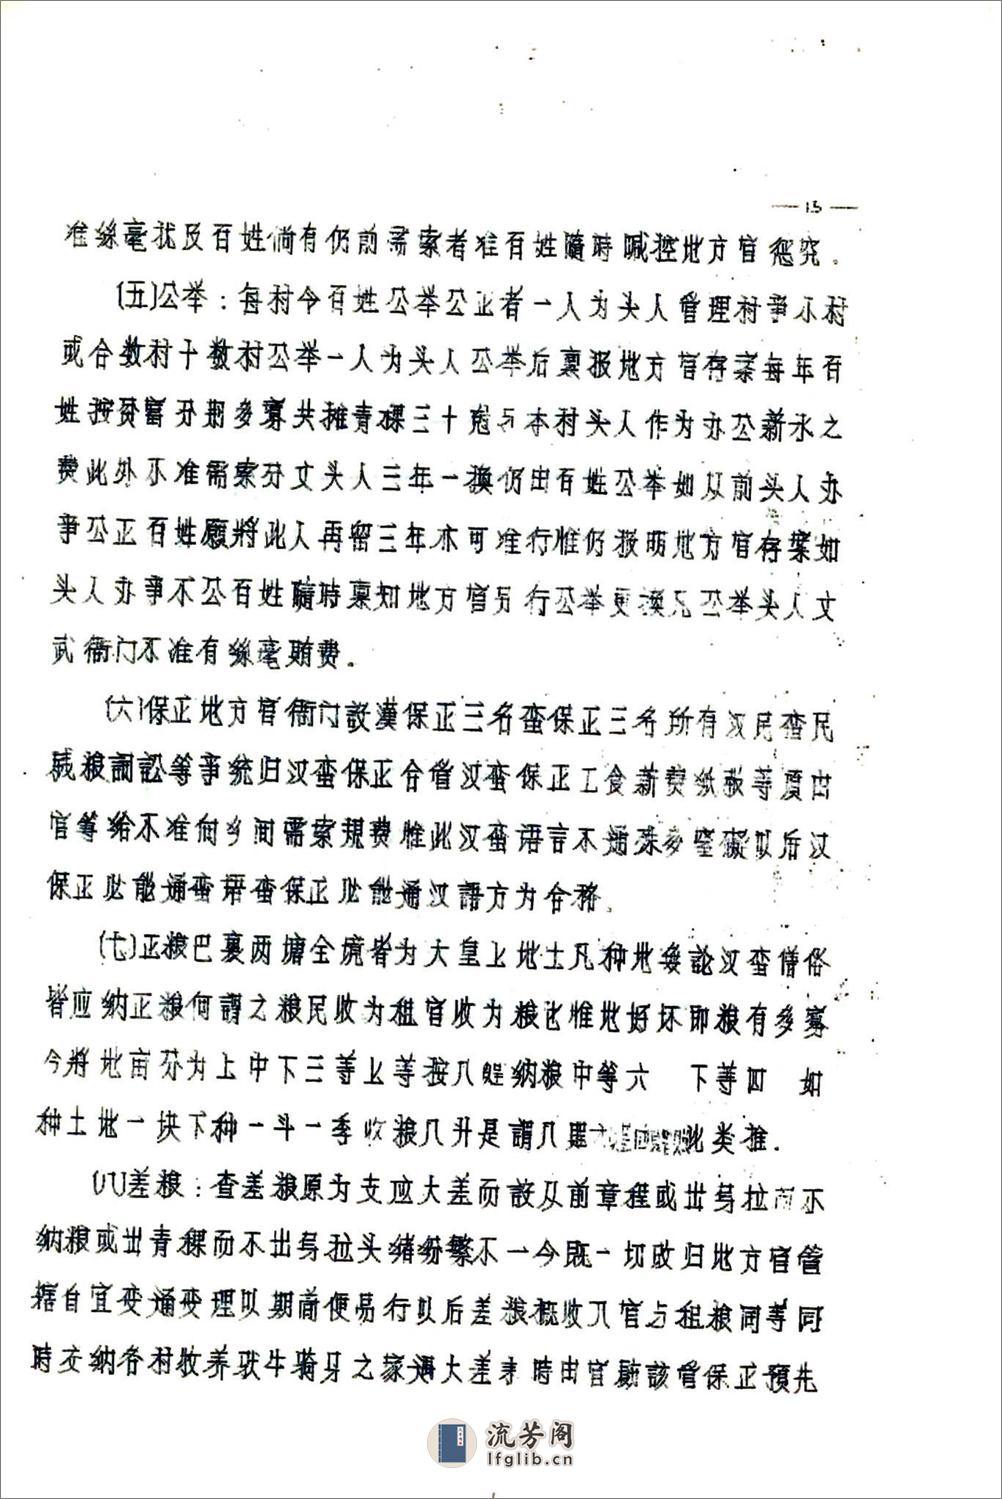 — 15 —
准絲毫扰及百姓倘有仍前需索者准百姓隨時喊控地方官惩究。
(五)公举：每村令百姓公举公正者一人为头人管理村事小村
或合数村十数村公举一人为头人公举后禀报地方官存案每年百
姓按贫富分别多寡共摊青稞三十克与本村头人作为办公薪水之
费此外不准需索分文头人三年一换仍由百姓公举如从前头人办
事公正百姓願將此人再留三年亦可准行惟仍报明地方官存案如
头人办事不公百姓隨時禀知地方官另行公举更换凡公举头人文
武衙门不准有絲毫賄费。
(六)保正地方官衙门設漢保正三名蛮保正三名所有汉民蛮民
粮詞訟等事統归汉蛮保正合管汉蛮保正工食薪费纸张等項由
官筹给不准向乡间需索規费惟此汉蛮语言不通殊多窒礙以后汉
保正必能通蛮語蛮保正必能通汉語方为合格。
(七)正粮巴裏两塘全境者为大皇上地土凡种地無論汉蛮僧俗
皆应纳正粮何謂之粮民收为租官收为粮也惟地好坏即粮有多寡
今將地亩分为上中下三等上等按八 纳粮中等六 下等四 如
种土地一块下种一斗一季收粮八升是謂八 此类推.
(八)差粮：查差粮原为支应大差而設从前章程或出马拉而不
纳粮或出青稞而不出马拉头绪纷繁不一今既一切改归地方官管
轄自宜变通变理以期简便易行以后差粮概收入官与租粮同等同
時交纳各村牧养驮牛騎牙之家遇大差 時由官 該管保正預先
流芳阁
lfglib.cn